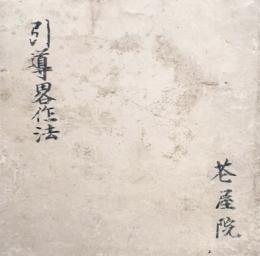 引導畧作法
屋院